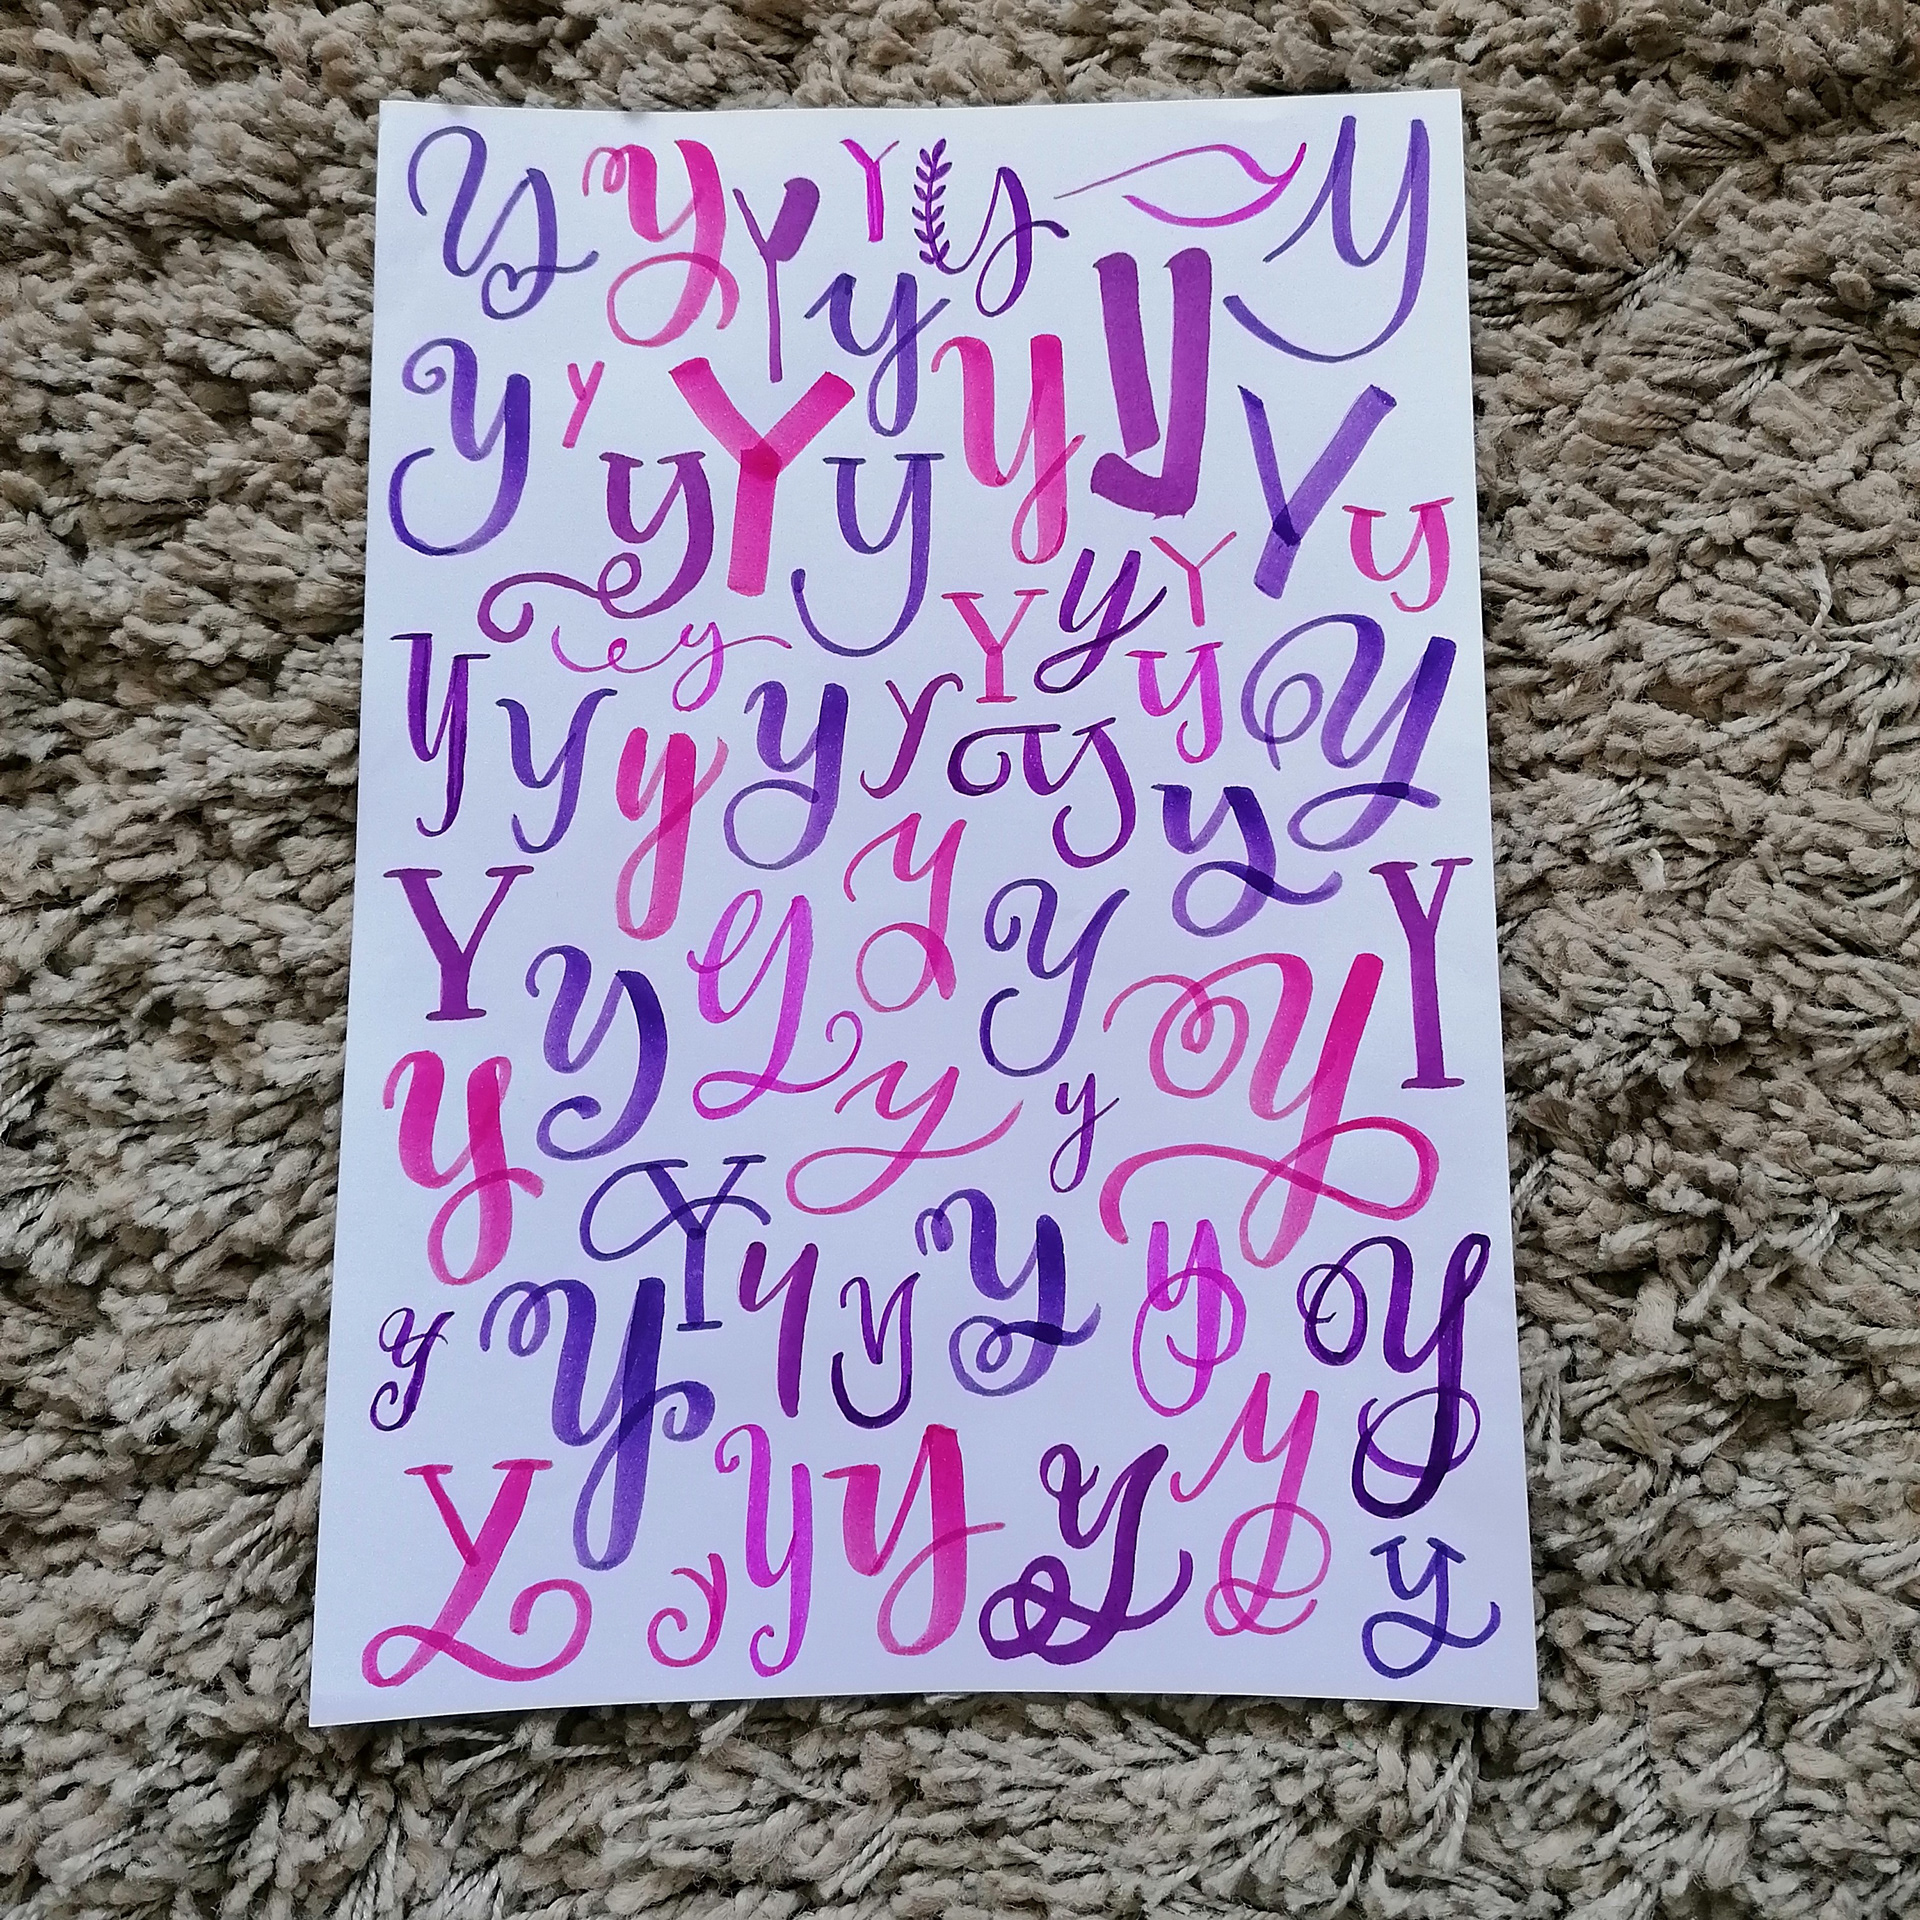 y y Y Y y y y
y y y y y
y Y y y Y y
y y Y y Y y
y y y y y y y y y
Y y y y y y Y
y y y y
y y Y y y y y y y
y y y y y y y